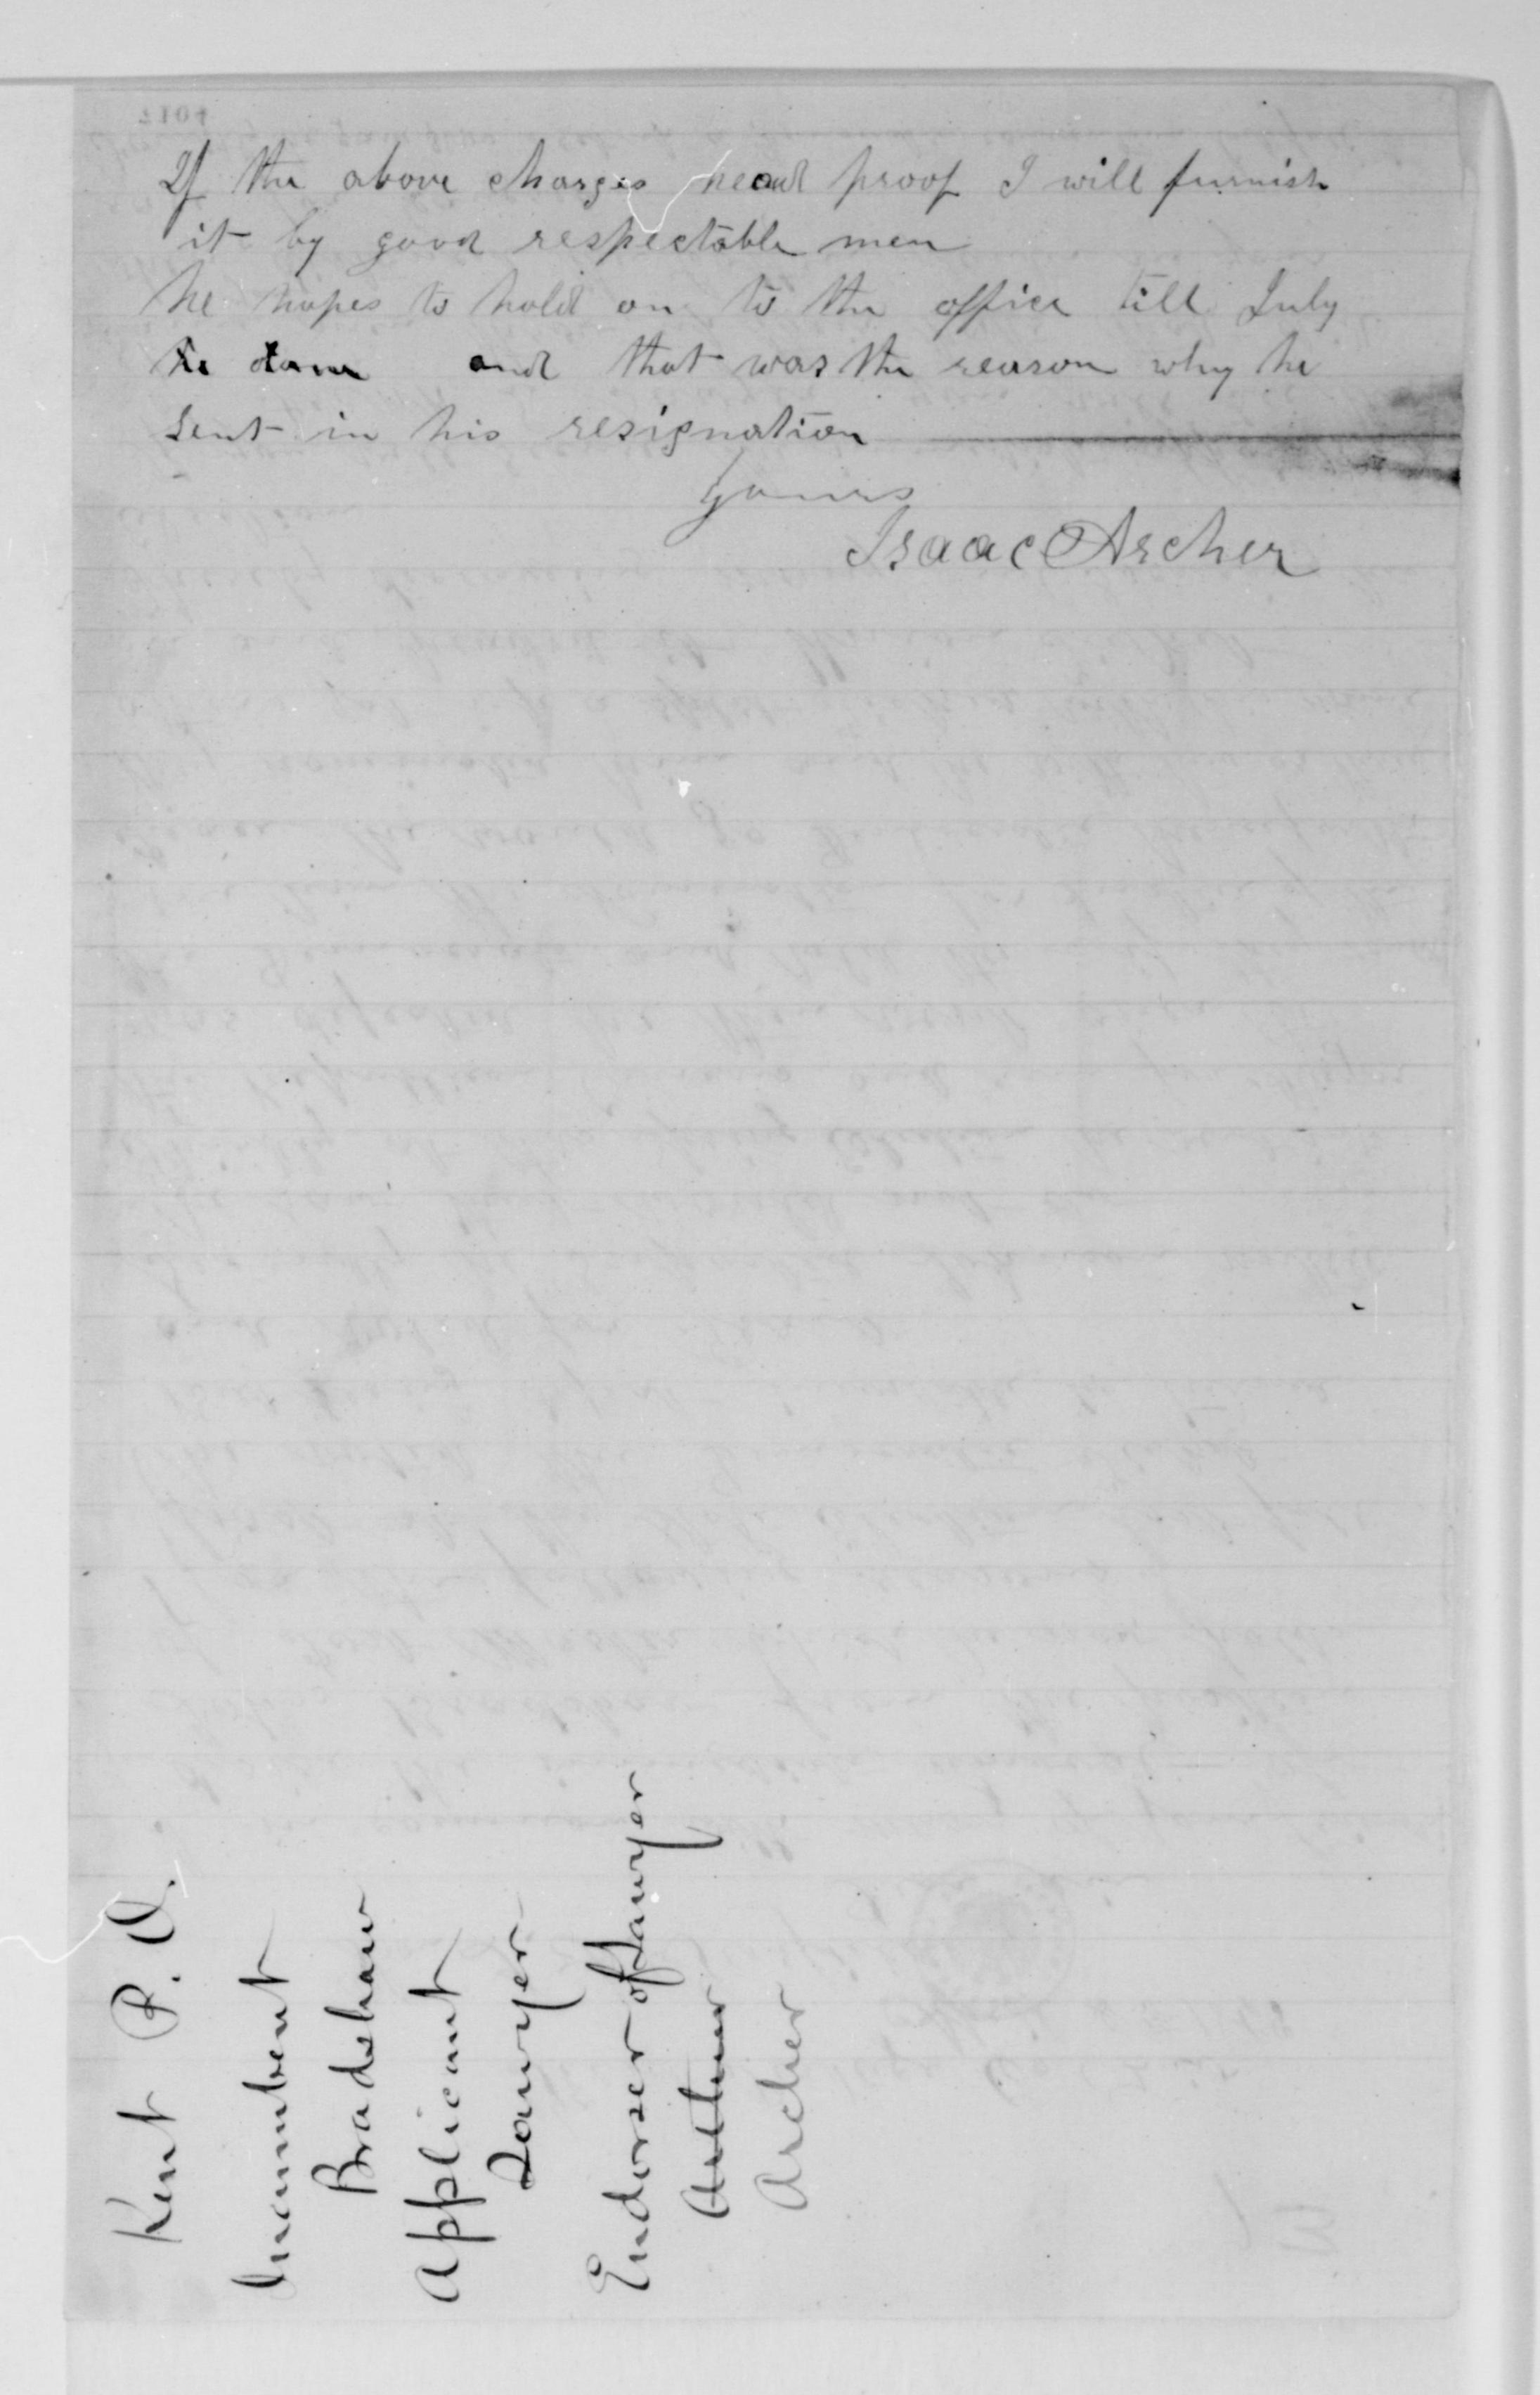 If the above charges nead proof I will furnish
it by good respectable men
he hopes to hold on to the office till July
and that was the reason why he
sent in his resignation
Yours
Isaac Archer
Kent P. O.
Incumbent
Bradshaw
Applicant
Sawyer
Endorser of Sawyer
Archer